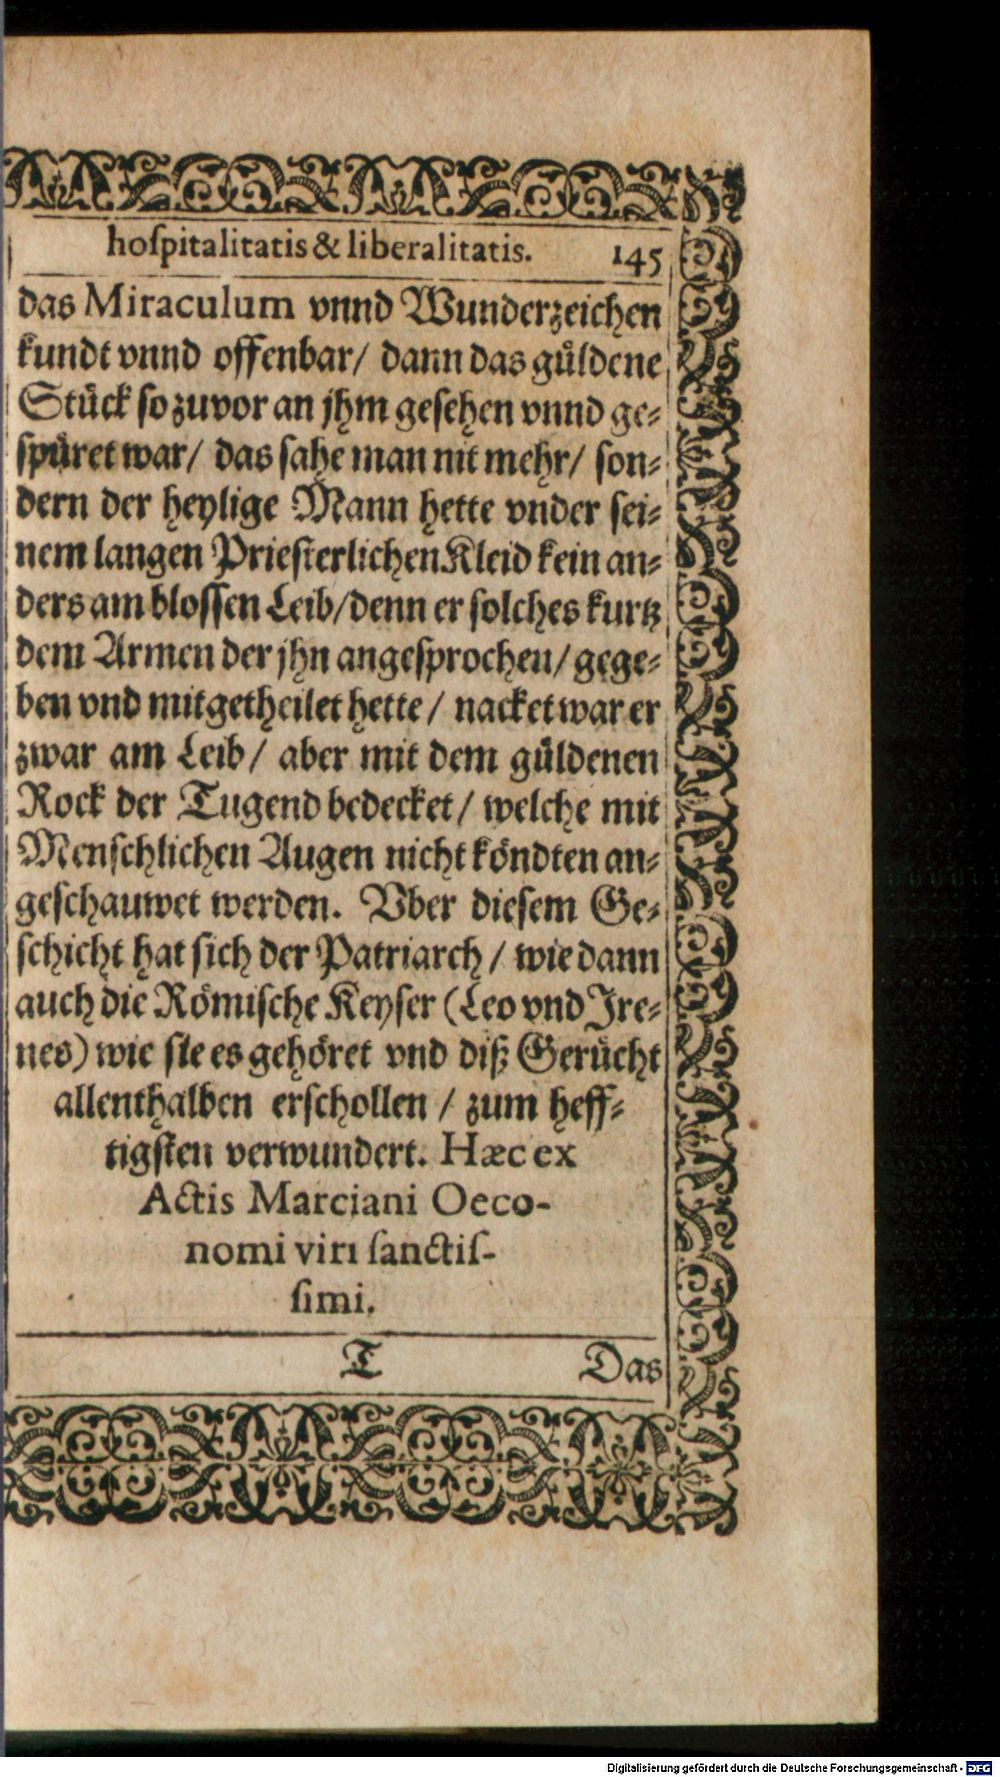 hoſpitalitatis & liberalitatis. 145
das Miraculum vnnd Wunderzeichen
kundt vnnd offenbar/ dann das güldene
Stück ſo zuvor an jhm geſehen vnnd ge⸗
ſpüret war/ das ſahe man nit mehr/ ſon⸗
dern der heylige Mann hette vnder ſei⸗
nem langen Prieſterlichen Kleid kein an⸗
ders am bloſſen Leib/ denn er ſolches kurtz
dem Armen der jhn angeſprochen/ gege⸗
ben vnd mitgetheilet hette/ nacket war er
zwar am Leib/ aber mit dem güldenen
Rock der Tugend bedecket/ welche mit
Menſchlichen Augen nicht köndten an⸗
geſchauwet werden. Vber dieſem Ge⸗
ſchicht hat ſich der Patriarch/ wie dann
auch die Römiſche Keyſer (Leo vnd Ire⸗
nes) wie ſie es gehöret vnd diß Gerücht
allenthalben erſchollen/ zum heff⸗
tigſten verwundert. Hæc ex
Actis Marciani Oeco-
nomi viri ſanctiſ-
ſimi.
T Das
Digitalisierung gefördert durch die Deutsche Forschungsgemeinschaft - DFG